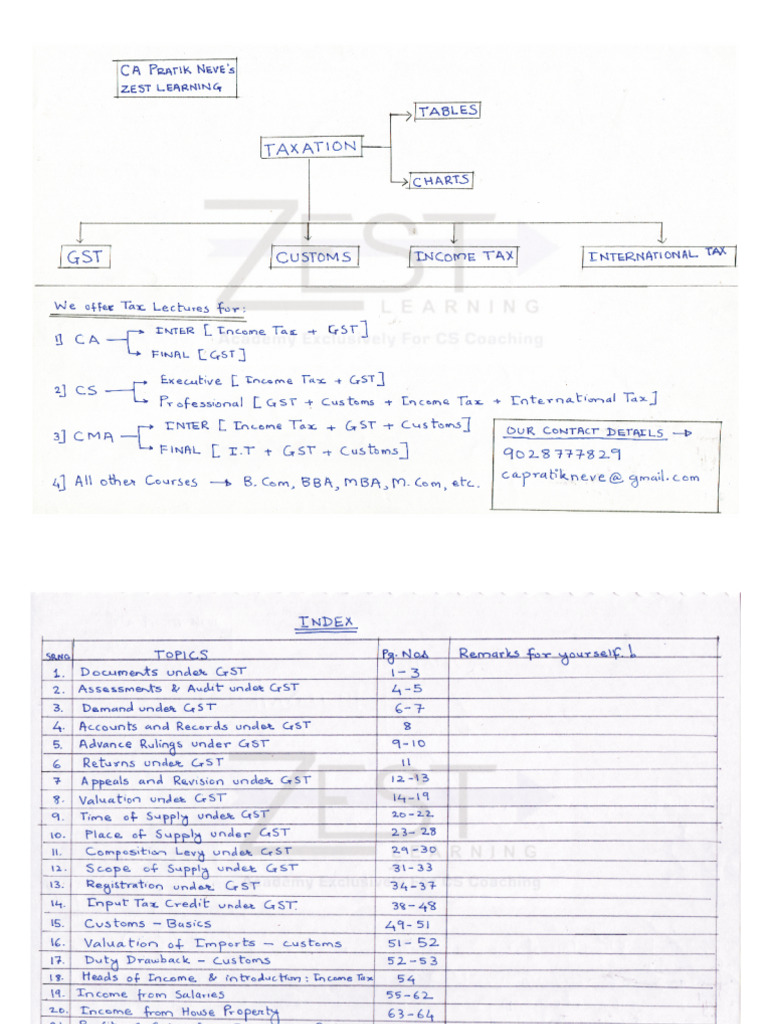 CA PRATIK NEVE'S
ZEST LEARNING
TABLES
TAXATION
CHARTS
GST
CUSTOMS
INCOME TAX
INTERNATIONAL TAX
ZEST
LEARNING
Academy Exclusively For CS Coaching
We offer Tax Lectures for:
1] CA
INTER [Income Tax + GST]
FINAL [GST]
2] CS
Executive [Income Tax + GST]
Professional [GST + Customs + Income Tax + International Tax]
3] CMA
INTER [Income Tax + GST + Customs]
FINAL [I.T + GST + Customs]
4] All other Courses → B.Com, BBA, MBA, M.Com, etc.
OUR CONTACT DETAILS →
9028777829
capratikneve@gmail.com
INDEX
SR.NO TOPICS Pg. Nos Remarks for yourself.!
1. Documents under GST 1-3
2. Assessments & Audit under GST 4-5
3. Demand under GST 6-7
4. Accounts and Records under GST 8
5. Advance Rulings under GST 9-10
6 Returns under GST 11
7 Appeals and Revision under GST 12-13
8. Valuation under GST 14-19
9. Time of Supply under GST 20-22
10. Place of Supply under GST 23-28
11. Composition Levy under GST 29-30
12. Scope of Supply under GST 31-33
13. Registration under GST 34-37
14. Input Tax Credit under GST. 38-48
15. Customs - Basics 49-51
16. Valuation of Imports - customs 51-52
17. Duty Drawback - Customs 52-53
18. Heads of Income & introduction: Income Tax 54
19. Income from Salaries 55-62
20. Income from House Property 63-64
ZEST
LEARNING
Academy Exclusively For CS Coaching